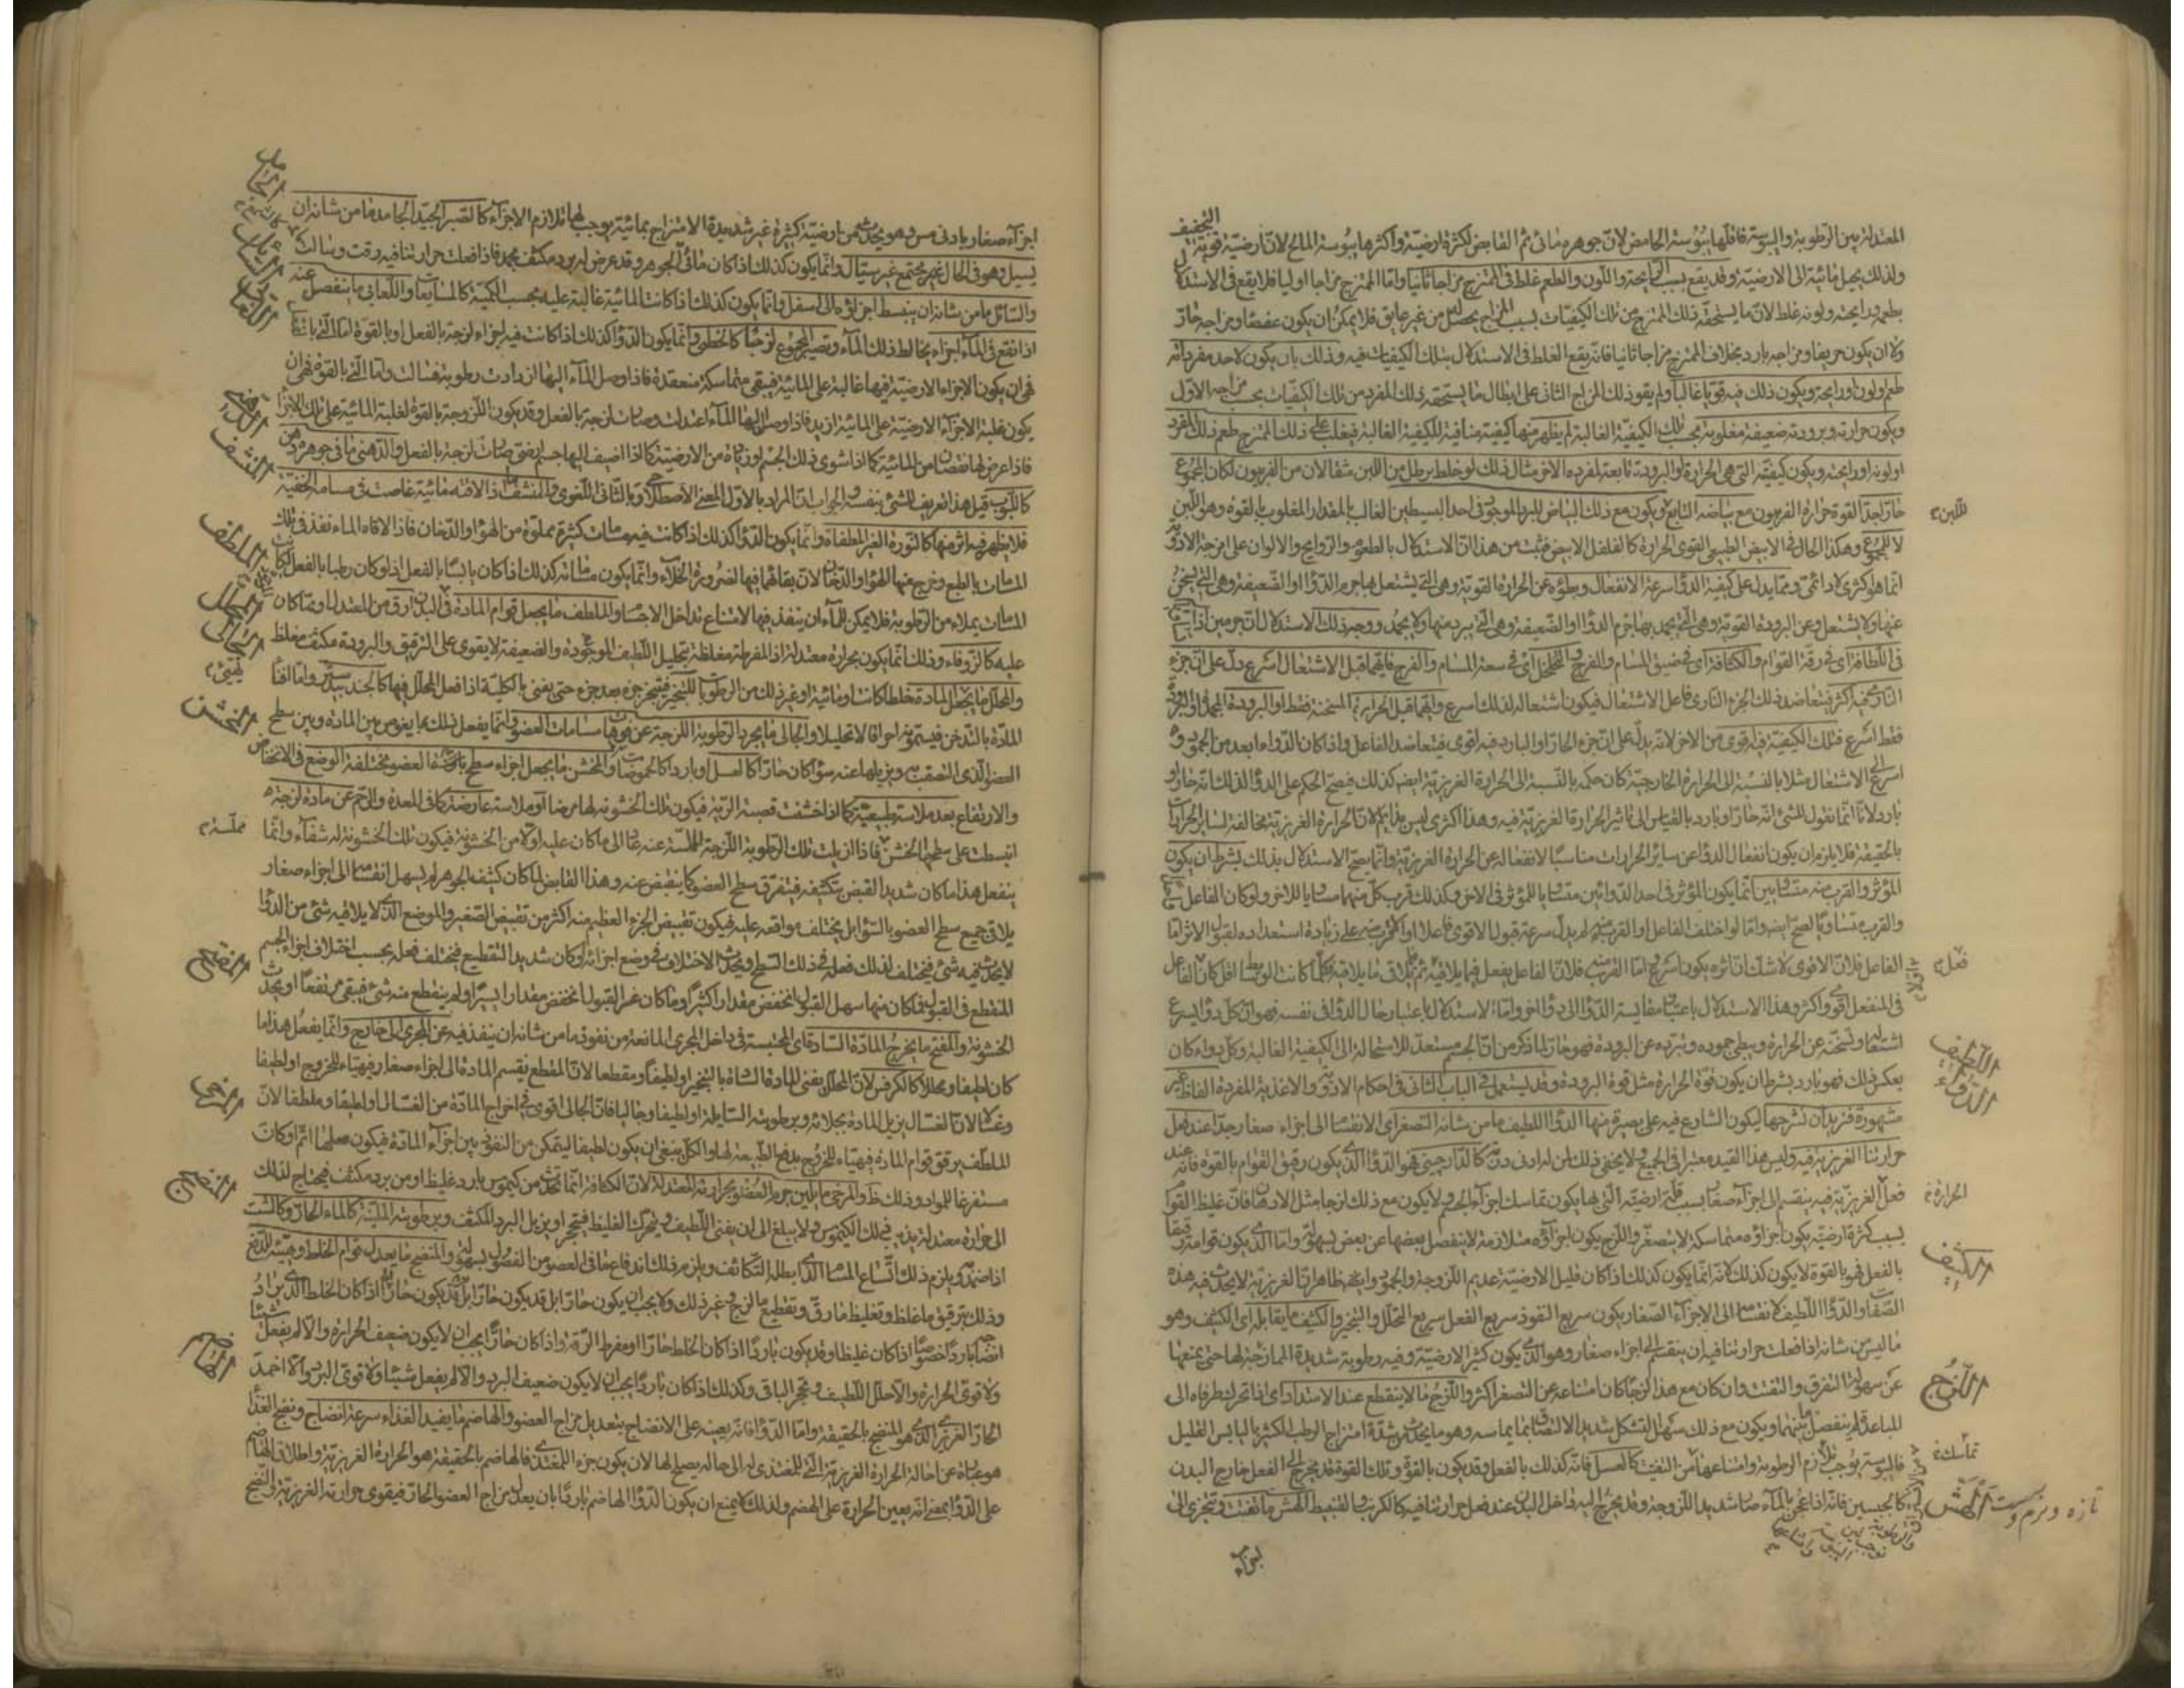 التجفيف
المعتدلة بين الرطوبة واليبوسة فاقلها يبوسة الحامض لان جوهره مائى ثم القابض لكثرة ارضيته واكثرها يبوسة المالح لان ارضيته قوية
ولذلك يحيل مائيته الى الارضية وقد يقع بسبب الرايحة واللون والطعم غلط فى الممتزج مزاجا ثانيا واما الممتزج مزاجا اوليا فلا يقع فى الاستدلال
بطعمه ورايحته ولونه غلط لان ما يستحقه ذلك الممتزج من تلك الكيفيات بسبب المزاج يحصل من غير عايق فلا يمكن ان يكون عفصا ومزاجه حار
ولا ان يكون حريفا ومزاجه بارد بخلاف الممتزج مزاجا ثانيا فانه يقع الغلط فى الاستدلال بتلك الكيفيات فيه وذلك بان يكون لاحد مفرداته
طعم ولون ورايحة ويكون ذلك فيه قويا غالبا ولم يقو ذلك المزاج الثانى على ابطال ما يستحقه ذلك المفرد من تلك الكيفيات بحسب مزاجه الاول
ويكون حرارته وبرودته ضعيفة مغلوبة بحسب تلك الكيفية الغالبة لم يظهر منها كيفية منافية للكيفية الغالبة فيغلب على ذلك الممتزج طعم ذلك المفرد
او لونه او رايحته ويكون كيفيته التى هى الحرارة او البرودة تابعة لمفرده الاخر مثال ذلك لو خلط برطل من اللبن مثقالان من الفربيون لكان المجموع
حارا جدا لقوة حرارة الفربيون مع بياضه التابع ويكون مع ذلك البياض للبرد الموجود فى احد البسيطين الغالب بالمقدار المغلوب بالقوة وهو اللبن
لا للمجموع وهكذا الحال فى الابيض الطبيعى القوى الحرارة كالفلفل الابيض فثبت من هذا ان الاستدلال بالطعوم والروايح والالوان على امزجة الادوية
انما هو اكثرى لا دائمى ومما يدل على كيفية الدوا سرعة الانفعال وبطؤه عن الحرارة القوية وهى التى يشتعل بها جرم الدوا او الضعيفة وهى التى يسخن
عنها ولا يشتعل وعن البرودة القوية وهى التى يجمد بها جرم الدوا او الضعيفة وهى التى يبرد منها ولا يجمد ووجه ذلك الاستدلال ان جرمين اذا تساويا
فى اللطافة اى فى رقة القوام والكثافة اى فى ضيق المسام والفرج والتخلخل اى فى سعة المسام والفرج فايهما قبل الاشتعال اسرع دل على ان جزء
النارى فيه اكثر فيتعاضد ذلك الجزء النارى فاعل الاشتعال فيكون اشتعاله لذلك اسرع وايهما قبل الحرارة المسخنة فقط او البرودة المجمدة او المبردة
فقط اسرع فتلك الكيفية فيه اقوى من الاخر لانه يدل على ان جزءه الحار او البارد فيه اقوى فيتعاضد الفاعل واذا كان الدواء ابعد من الجمود و
اسرع الى الاشتعال مثلا بالنسبة الى الحرارة الخارجية كان حكمه بالنسبة الى الحرارة الغريزية ايضا كذلك فيصح الحكم على الدوا لذلك انه حار او
بارد لانا انما نقول للشئ انه حار او بارد بالقياس الى تاثير الحرارة الغريزية فيه وهذا اكثرى ليس بدايم لان الحرارة الغريزية مخالفة لساير الحرارات
بالحقيقة فلا يلزم ان يكون انفعال الدوا عن ساير الحرارات مناسبا لانفعاله عن الحرارة الغريزية وانما يصح الاستدلال بذلك بشرط ان يكون
المؤثر والقرب منه متساويين
الفاعل فلان الاقوى لا شك ان تاثره يكون اسرع
فى المنفعل اقوى واكثر وهذا الاستدلال باعتبار مقايسة الدوا الى دوا اخر واما الاستدلال باعتبار حال الدوا فى نفسه فهو ان كل دوا يسرع
اشتعاله وتسخنه عن الحرارة ويبطى جموده وتبرده عن البرودة فهو حار لما ذكر من ان الجسم مستعد للاستحالة الى الكيفية الغالبة وكل دواء كان
بعكس ذلك فهو بارد بشرط ان يكون قوة الحرارة مثل قوة البرودة وقد يستعمل فى الباب الثانى فى احكام الادوية والاغذية المفردة الفاظ غير
مشهورة فنريد ان نشرحها ليكون الشارع فيه على بصيرة منها الدوا اللطيف ما من شانه التصغر اى الانقسام الى اجزاء صغار جدا عند فعل
حرارتنا الغريزية فيه وليس هذا القيد معتبرا فى الجميع ولا يخفى ذلك لمن له ادنى دربة كالدارچينى فهو الدوا الذى يكون رقيق القوام بالقوة فانه عند
فعل الغريزية فيه ينقسم الى اجزاء صغار بسبب قلة ارضيته التى بها يكون تماسك اجزاء الجسم ولا يكون مع ذلك لزجا مثل الادهان فان غليظ القوام
بسبب كثرة ارضيته يكون اجزاؤه متماسكة لا يتصغر واللزج يكون اجزاؤه متلازمة لا ينفصل بعضها عن بعض بسهولة واما الذى يكون قوامه رقيقا
بالفعل فهو بالقوة لا يكون كذلك
الصفات والدوا اللطيف لانقسامه الى الاجزاء الصغار يكون سريع النفوذ سريع الفعل سريع التحلل والتبخر والكثيف ما يقابله اى الكثيف وهو
ما ليس من شانه اذا فعلت حرارتنا فيه ان ينقسم الى اجزاء صغار وهو الذى يكون كثير الارضية وفيه رطوبة شديدة الممازجة لها حتى يمنعها
عن سهولة التفرق والتفتت وان كان مع هذا لزجا كان امتناعه عن التصغر اكثر واللزج ما لا ينقطع عند الامتداد اى اذا تحرك طرفاه الى
المباعدة لم ينفصل ما بينهما ويكون مع ذلك سهل التشكل شديد الالتصاق بما يماسه وهو ما يحدث من شدة امتزاج الرطب الكثير باليابس القليل
فاليبوسة يوجب تلازم الرطوبة وامتناعها من التفتت كالعسل فانه كذلك بالفعل وقد يكون بالقوة وتلك القوة قد يخرج الى الفعل خارج البدن
كالجبسين فانه اذا عجن بالماء صار شديد اللزوجة وقد يخرج اليه داخل البدن عند فعل حرارتنا فيه كالكرنب والقنبيط الهش ما يتفتت ويتجزى الى
اجزاء
للبن
فعل
اللطيف
الدواء
الحرارة
الكثيف
اللزج
تماسك
الهش
تازه ونرم وسست
اجزاء صغار بادنى مس وهو يحدث من ارضية كثيرة غير شديدة الامتزاج بمائية يوجب لها تلازم الاجزاء كالصبر الجيد الجامد ما من شانه ان
يسيل وهو فى الحال غير مجتمع غير سيال وانما يكون كذلك اذا كان مائى الجوهر وقد عرض له برد مكثف مجمد فاذا فعلت حرارتنا فيه رقت وسالت
والسائل ما من شانه ان ينبسط اجزاؤه الى اسفل وانما يكون كذلك اذا كانت المائية غالبة عليه بحسب الكمية كالمايعات واللعابى ما ينفصل عنه
اذا نقع فى الماء اجزاء يخالط ذلك الماء ويصير المجموع لزجا كالخطمى وانما يكون الدوا كذلك اذا كانت فيه اجزاء لزجة بالفعل او بالقوة اما التى بالفعل
فهى ان يكون الاجزاء الارضية فيها غالبة على المائية فيبقى متماسكة منعقدة فاذا وصل الماء اليها ازدادت رطوبة فسالت واما التى بالقوة فهى ان
يكون غلبة الاجزاء الارضية على المائية ازيد فاذا وصل اليها الماء اعتدلت وصارت لزجة بالفعل وقد يكون اللزوجة بالقوة لغلبة المائية على تلك الاجزاء
فاذا عرض لها نقصان من المائية كما اذا شوى ذلك الجسم او زيادة من الارضية كما اذا اضيف اليها جسم عفص صارت لزجة بالفعل والدهنى ما فى جوهره دهن
كاللبوب قيل هذا تعريف للشئ بنفسه والجواب ان المراد بالاول المعنى الاصطلاحى وبالثانى اللغوى والمنشف ما اذا لاقته مائية غاصت فى مسامه الخفية
فلا يظهر فيه اثر منها كالنورة الغير المطفاة وانما يكون الدوا كذلك اذا كانت فيه مسامات كثيرة مملوة من الهوا والدخان فاذا لاقاه الماء نفذ فى تلك
المسامات بالطبع وخرج منها الهوا والدخان لان بقائهما فيها لضرورة الخلاء وانما يكون مساماته كذلك اذا كان يابسا بالفعل اذ لو كان رطبا بالفعل لكانت
المسامات مملاة من الرطوبة فلا يمكن للماء ان ينفذ فيها لامتناع تداخل الاجسام والملطف ما يجعل قوام المادة فى البدن ارق من المعتدل او مما كان
عليه كالزوفاء وذلك انما يكون بحرارة معتدلة اذ المفرطة مغلظة بتحليل اللطيف الموجود والضعيفة لا يقوى على الترقيق والبرودة مكثف مغلظ
والمحلل ما يجعل المادة خلطا كانت او مائية او غير ذلك من الرطوبات للتبخير فيتبخر جزء بعد جزء حتى يفنى بالكلية اذا فعل المحلل فيها كالجندبيدستر واما افناء
المادة بالتدخن فيسمونه احراقا لا تحليلا والجالى ما يجرد الرطوبة اللزجة عن فوهات مسامات العضو وانما يفعل ذلك بما يغوص بين المادة وبين سطح
العضو الذى التصقت به ويزيلها عنه سواء كان حارا كالعسل او باردا كالحموضات والمخشن ما يجعل اجزاء سطح العضو مختلفة الوضع فى الانخفاض
والارتفاع بعد ملاسة طبيعية كما اذا خشنت قصبة الرية فيكون تلك الخشونة لها مرضا او ملاسة عارضة كما فى المعدة والرحم عن مادة لزجة
انبسطت على سطحها الخشن فاذا ازيلت تلك الرطوبة اللزجة المملسة عنه عاد الى ما كان عليه اولا من الخشونة فيكون تلك الخشونة له شفاء وانما
يفعل هذا ما كان شديد القبض بتكثيفه فيتفرق سطح العضو كما ينقبض عنه وهذا القابض لما كان كثيف الجوهر لم يسهل انقسامه الى اجزاء صغار
يلاقى جميع سطح العضو بالسواء بل يختلف مواقعه عليه فيكون تقبيض الجزء العظيم منه اكثر من تقبيض الصغير والموضع الذى لا يلاقيه شئ من الدوا
لا يحدث فيه شئ فيختلف لذلك فعله فى ذلك السطح ويحدث الاختلاف فى وضع اجزائه او كان شديد التقطيع فيختلف فعله بحسب اختلاف اجزاء الجسم
المنقطع فى القبول فما كان منها سهل القبول انخفض مقدارا كثيرا وما كان عسر القبول انخفض مقدارا يسيرا ولم ينقطع منه شئ فيبقى مرتفعا ويحدث
الخشونة والمفتح ما يخرج المادة السادة اى المحتبسة فى داخل المجرى المانعة من نفوذ ما من شانه ان ينفذ فيه عن المجرى الى خارج وانما يفعل هذا ما
كان لطيفا ومحللا كالكرفس لان المحلل يفنى المادة السادة بالتبخير او لطيفا ومقطعا لان المقطع يقسم المادة الى اجزاء صغار فيهياء للخروج او لطيفا
وغسالا لان الغسال يزيل المادة بجلائه وبرطوبته السايلة او لطيفا وجاليا فان الجالى اقوى فى اخراج المادة من الغسال او لطيفا وملطفا لان
الملطف يرقق قوام المادة فيهياء للخروج بدفع الطبيعة لها والكل ينبغى ان يكون لطيفا ليتمكن من النفوذ بين اجزاء المادة فيكون فعلها اتم او كانت
مستفرغا للمواد وذلك ظ والمرخى ما يلين جرم العضو بحرارته المعتدلة لان الكثافة انما تحدث من كيموس بارد غليظ او من برد مكثف فيحتاج لذلك
الى حرارة معتدلة يذيب ذلك الكيموس ولا يبلغ الى ان يفنى اللطيف ويحرك الغليظ فيتحجر او يزيل البرد المكثف وبرطوبته الملينة كالماء الحار وكالشبت
اذا ضمد به ويلزم ذلك اتساع المسام لابطاله التكاثف ويلزم ذلك اندفاع ما فى العضو من الفضول بسهولة والمنضج ما يعدل قوام الخلط ويهيئه للدفع
وذلك بترقيق ما غلظ وتغليظ ما رق وتقطيع ما لزج وغير ذلك ولا يجب ان يكون حارا بل قد يكون حارا اذا كان الخلط الذى يراد
انضاجه باردا خصوصا اذا كان غليظا وقد يكون باردا اذا كان الخلط حارا او مفرط الرقة واذا كان حارا يجب ان لا يكون ضعيف الحرارة والا لم يفعل شيئا
ولا قوى الحرارة والا حلل اللطيف وتحجر الباقى وكذلك اذا كان باردا يجب ان لا يكون ضعيف البرد والا لم يفعل شيئا ولا قوى البرد والا اخمد
الحار الغريزى الذى هو المنضج بالحقيقة واما الدوا فانه يعينه على الانضاج بتعديل مزاج العضو والهاضم ما يفيد الغذاء سرعة انضاج ونضج الغذا
هو عبارة عن احالة الحرارة الغريزية التى للمغتذى له الى حالة يصلح لها لان يكون جزء المغتذى فالهاضم بالحقيقة هو الحرارة الغريزية واطلاق الهاضم
على الدوا بمعنى انه يعين الحرارة على الهضم ولذلك لا يمتنع ان يكون الدوا الهاضم باردا بان يعدل مزاج العضو الحار فيقوى حرارته الغريزية والنضج
الجامد
السائل
اللعابى
الدهنى
المنشف
الملطف
المحلل
الجالى
المخشن
مملسة
المفتح
المرخى
المنضج
الهاضم